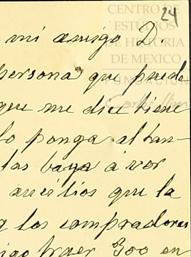 24
CENTRO
ESTUDIOS
DE HISTORIA
DE MEXICO
mi amigo D.
persona que puede
que me dice tiene
lo ponga al tan-
las baya a ver
aucilios que la
y los compradores
traer 300 en